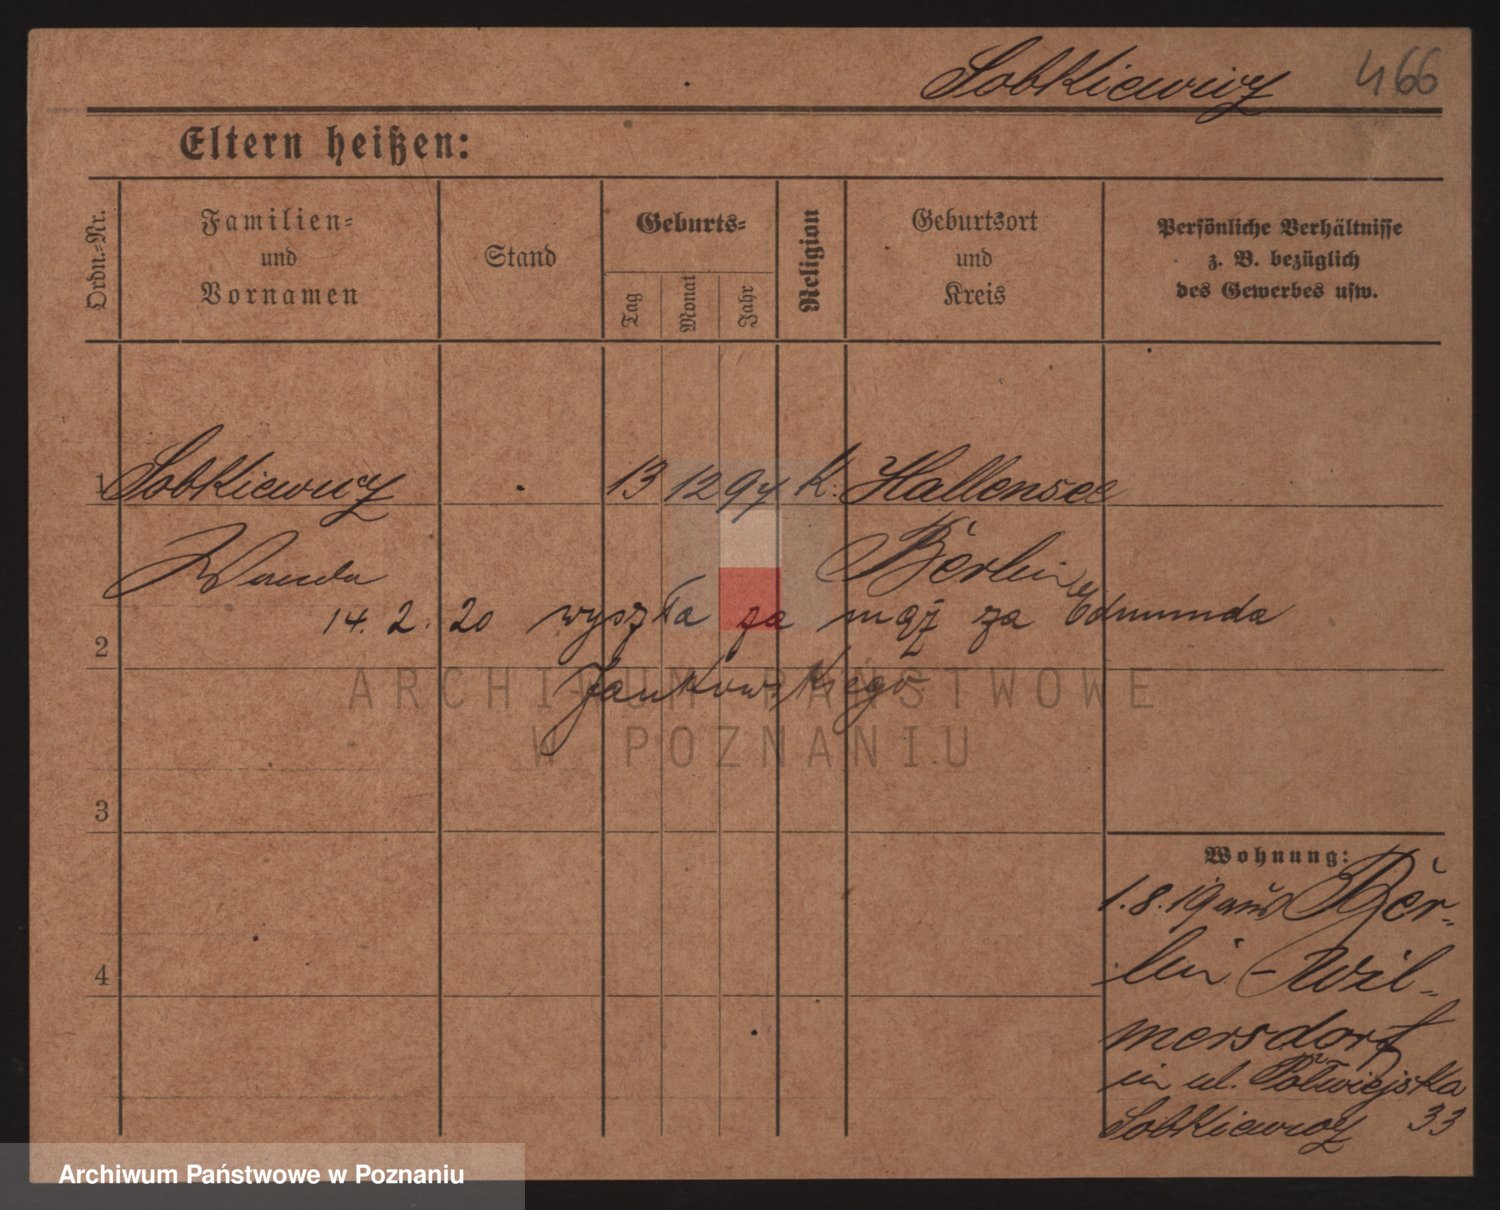 Sobkiewicz 466
Eltern heißen:
Ordn.=Nr.
Familien=
und
Vornamen
Stand
Geburts=
Tag
Monat
Jahr
Religion
Geburtsort
und
Kreis
Persönliche Verhältnisse
z. B. bezüglich
des Gewerbes usw.
1 Sobkiewicz 13 12 97 K. Hallensee
Wanda Berlin
14. 2. 20 wyszła za mąż za Edmunda
2
Jankowskiego
ARCHIWUM PAŃSTWOWE
W POZNANIU
3
Wohnung:
1.8.19 aus Ber-
lin - Wil-
4
mersdorf
in ul. Półwiejska
Sobkiewicz 33
Archiwum Państwowe w Poznaniu